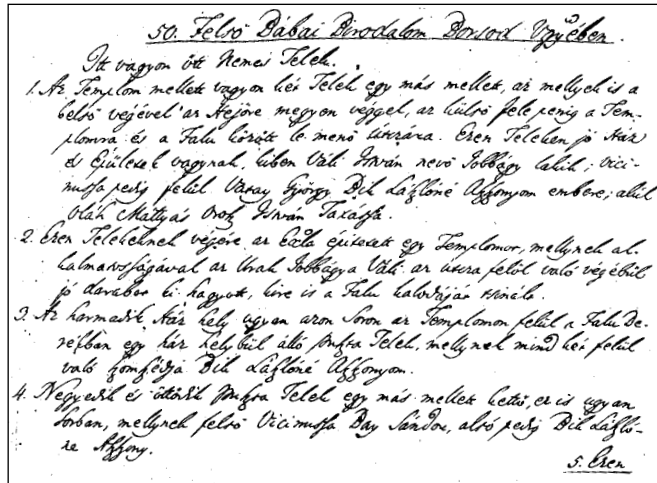 50. Felső Bábai Birodalom Borsod Vgyében.
Itt vagyon ött Nemes Telek.
1. Az Templom mellett vagyon két Telek egy más mellett, az mellyek is a
belső végével az Hejőre megyen véggel, az külső fele penig a Tem-
plomra és a Falu között le menő útszára. Ezen Teleken jó Ház
és Épületek vagynak, kiben Váli István nevő Jobbágy lakik; vici-
nussa pedig felül Vaÿay György Dik Lászlóné Aszszonyom embere; alúl
Oláh Mátyás Irok István Taxása.
2. Ezen Telekeknek végére az Excla épitetett egy Templomot, mellynek al-
kalmatosságával az Urak Jobbágya Váli az útsza felöl való végébül
jó darabot ki hagyott, kire is a Falu kalodáját tsinálta.
3. Az harmadik Ház hely ugyan azon Soron az Templomon felül a Falu De-
rekában egy ház helybül álló puszta Telek, mellynek mind két felül
való szomszédja Dik Lászlóné Aszszonyom.
4. Negyedik és ötödik puszta Telek egy más mellett kettő, ez is ugyan
sorban, mellynek felső Vicinussa Bay Sándor, alsó pedig Dik László-
né Aszszony.
5. Ezen